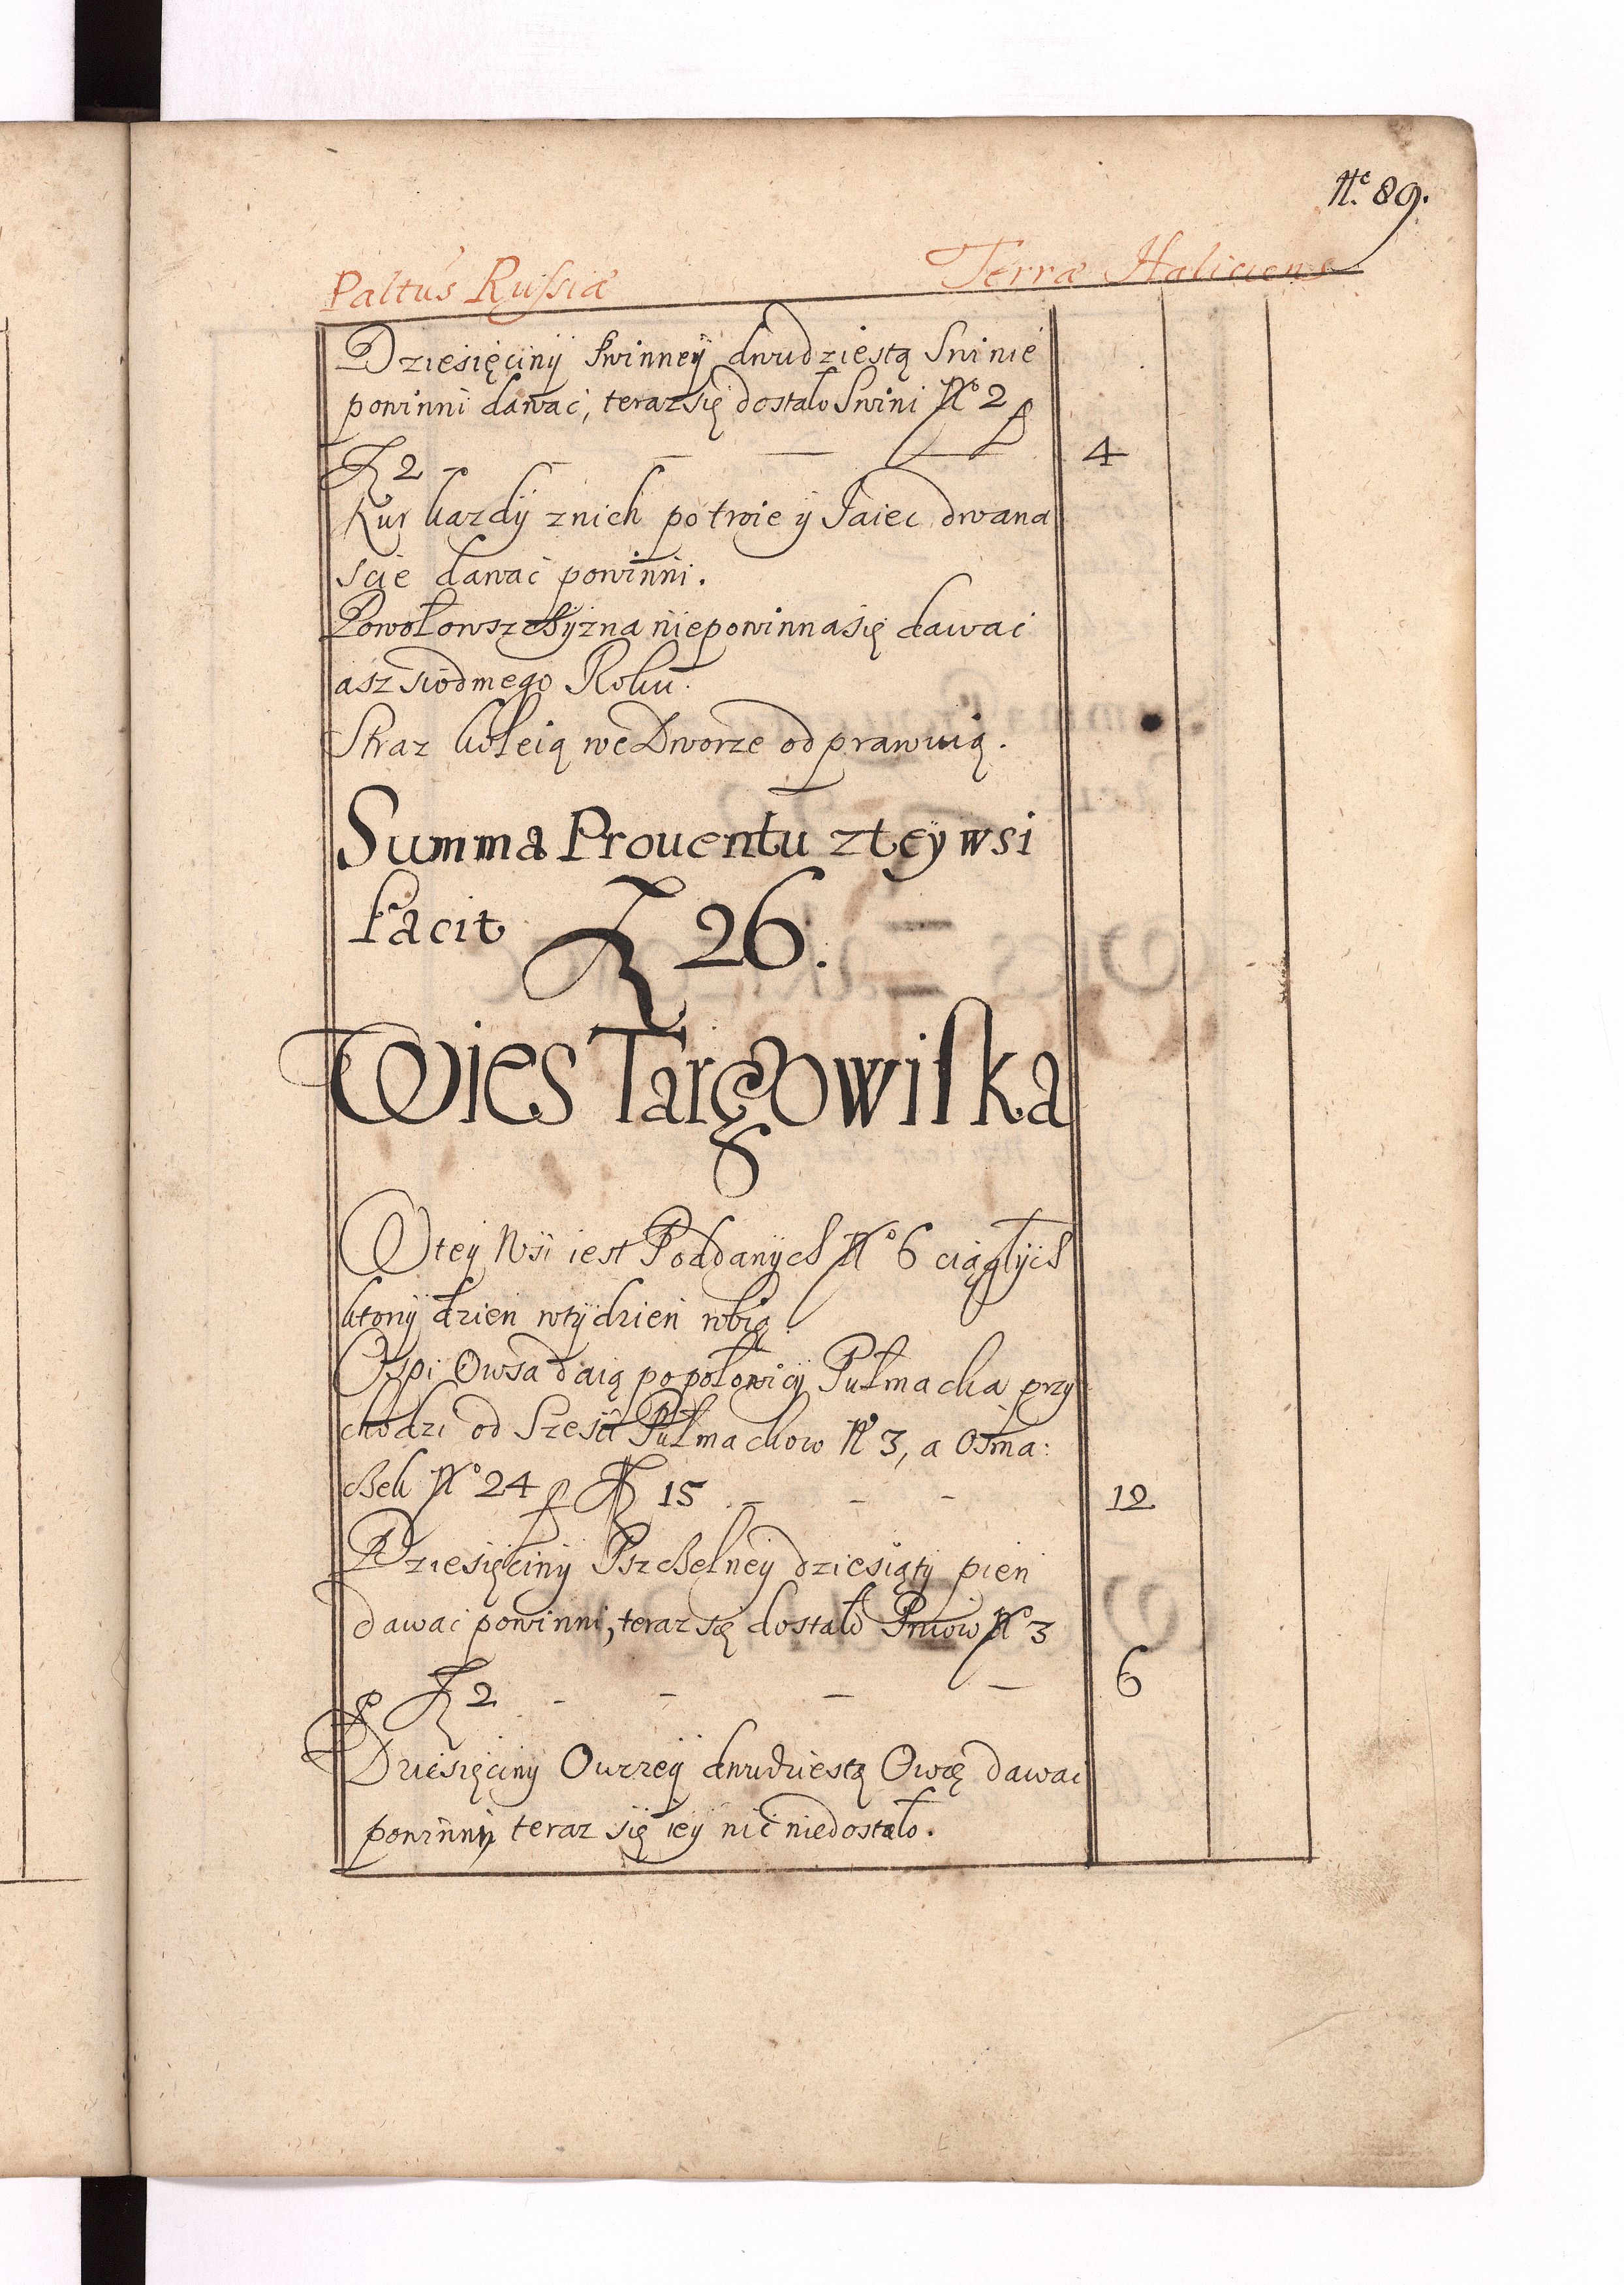 N.º 89.
Paltus Russiæ Terræ Haliciens
Dziesięciny Swinney dwudziestą Swinie
powinni dawać, teraz się dostało Swini Nº 2 ꝑ
ƶ 2 — — — — 4
Kur kazdy znich po troie y Jaiec dwana
scie dawać powinni.
Powołowszchyzna niepowinna się dawać
asz siodmego Roku.
Straz koleią we Dworze odprawuią.
Summa Prouentu z tey wsi
Facit ƶ 26.
Wies Targowiska
W tey Wsi iest Poddanych Nº 6 ciągłych
ktory dzien w tydzien robią.
Ospi Owsa daią po połowicy Pułmacka przy
chodzi od Szesci Pułmackow Nº 3, a Osma:
chek Nº 24 ꝑ ƶ 15 — — — 12
Dziesięciny Pszchelney dziesiąty pien
dawac powinni, teraz się dostało Pniow Nº 3
ꝑ ƶ 2 — — — — 6
Dziesięciny Owczey dwudziestą Owcę dawac
powinny teraz się iey nic niedostało.